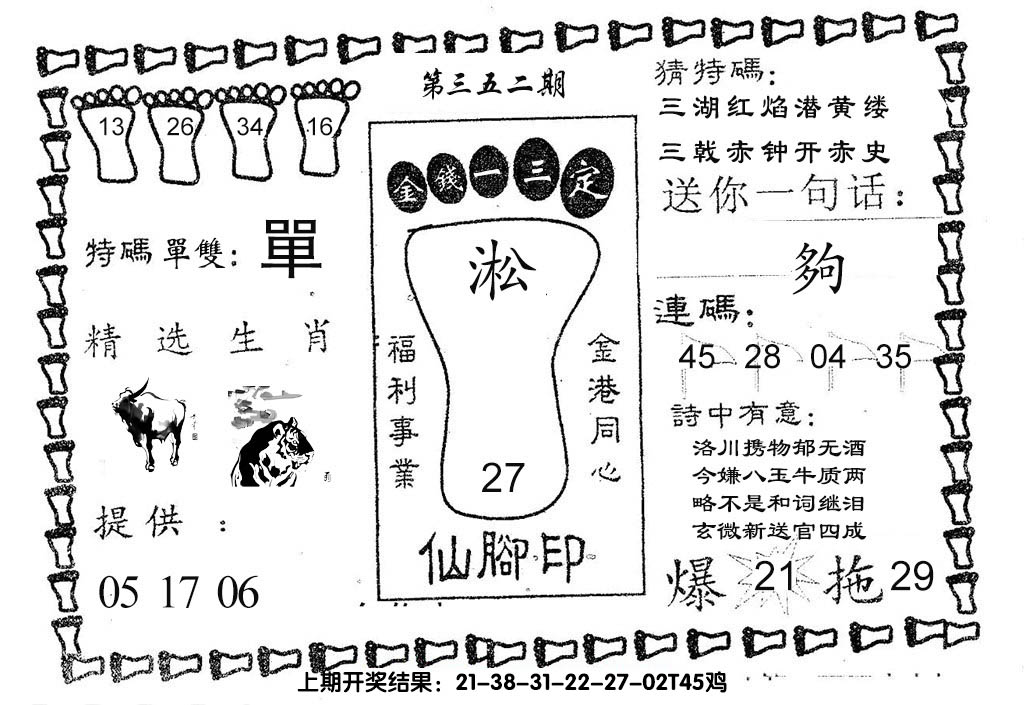 第三五二期
13 26 34 16
特碼單雙: 單
精选生肖
提供:
05 17 06
金錢一三定
淞
福利事業
金港同心
27
仙腳印
猜特碼:
三湖红焰潜黄缕
三戟赤钟开赤史
送你一句话:
夠
連碼:
45 28 04 35
詩中有意:
洛川携物郁无酒
今嫌八玉牛质两
略不是和词继泪
玄微新送官四成
爆 21 拖 29
上期开奖结果：21-38-31-22-27-02T45鸡